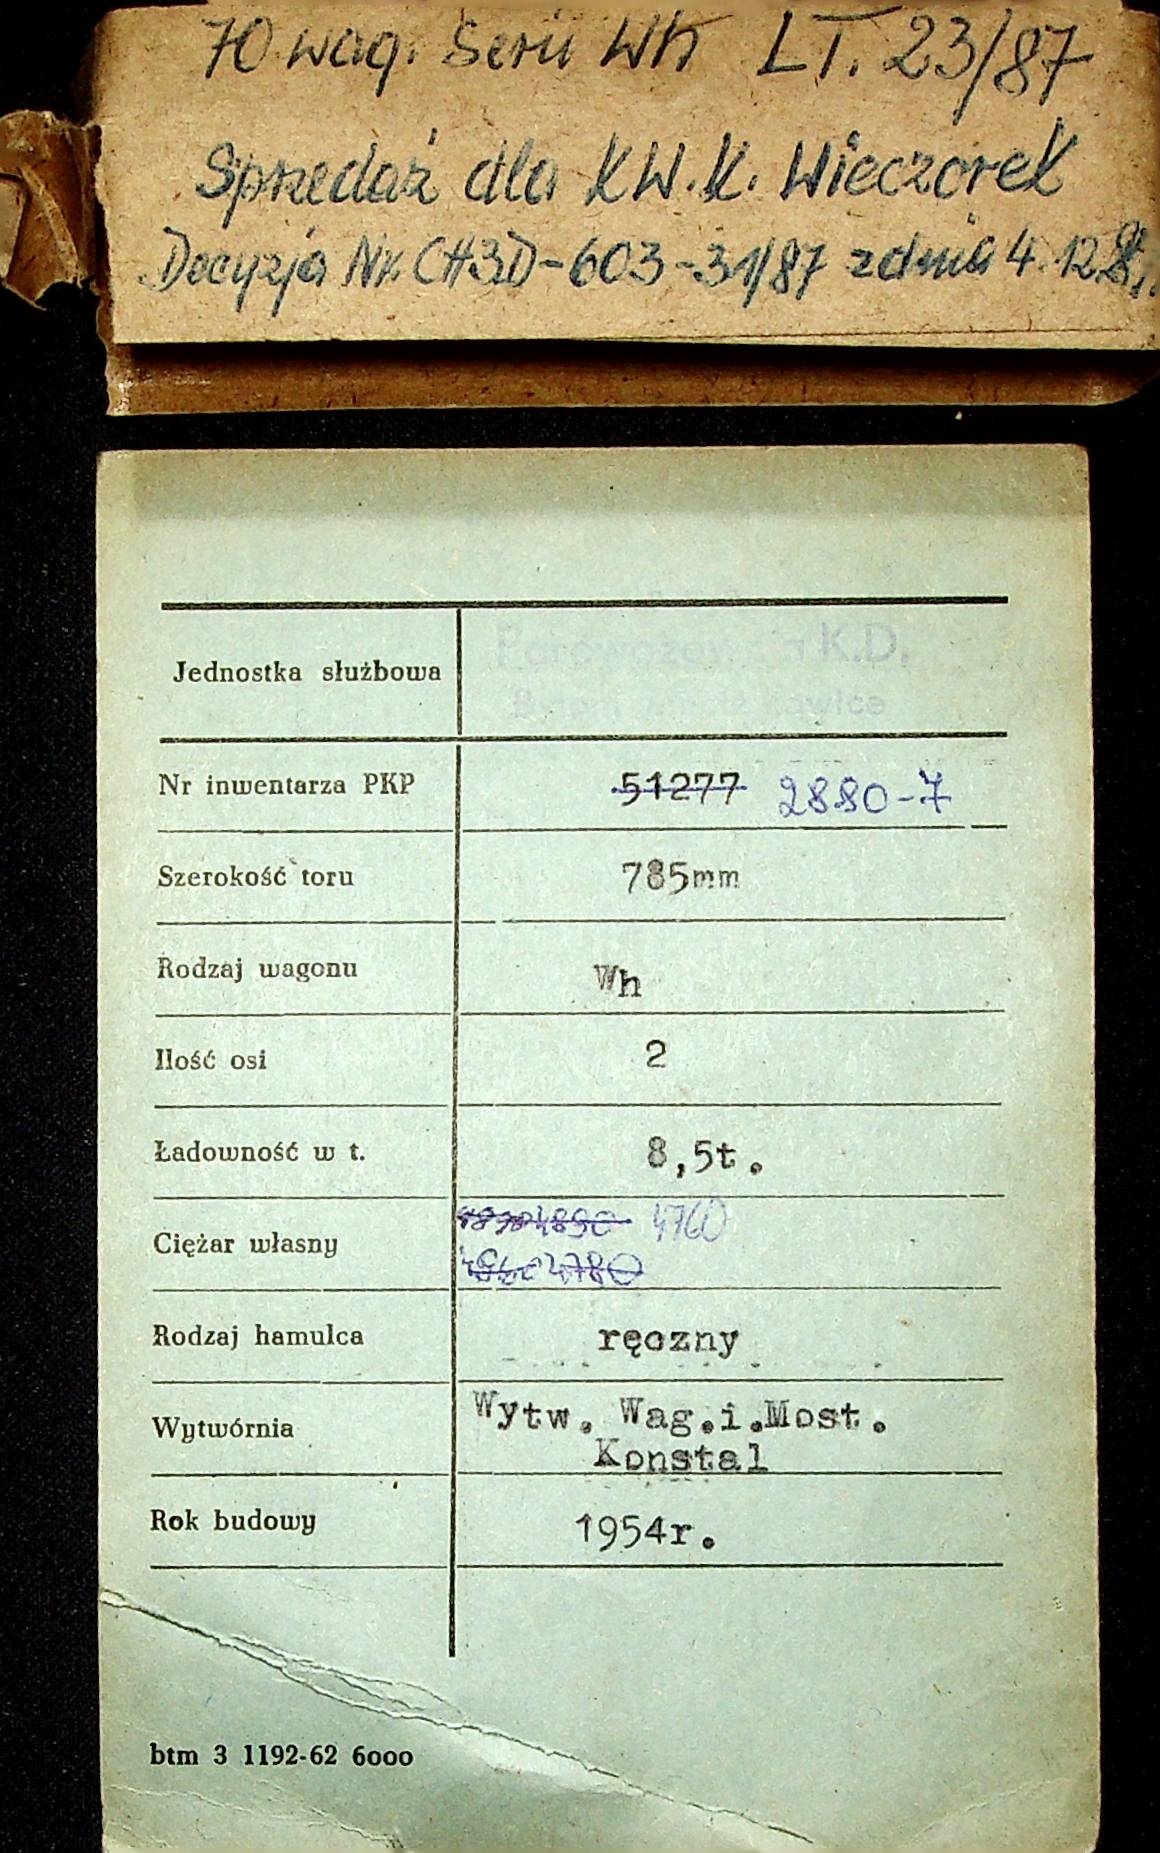 70 wag. Serii Wh LT. 23/87
Sprzedaż dla KW.K. Wieczorek
Decyzja Nr. CH3D-603-31/87 z dnia 4.12.
Jednostka służbowa Parowozownia K.D.
Nr inwentarza PKP 51277 2880-7
Szerokość toru 785mm
Rodzaj wagonu Wh
Ilość osi 2
Ładowność w t. 8,5t.
4890 4760
Ciężar własny
4780
Rodzaj hamulca ręczny
Wytwórnia Wytw. Wag.i.Most.
Konstal
Rok budowy 1954r.
btm 3 1192-62 6000